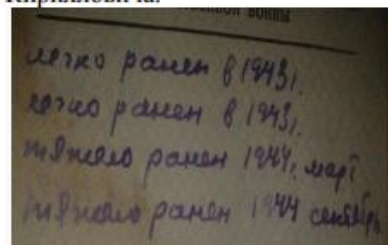 Кирилловича.
войны
легко ранен в 1943г.
легко ранен в 1943г.
тяжело ранен 1944г. март
тяжело ранен 1944 сентябрь